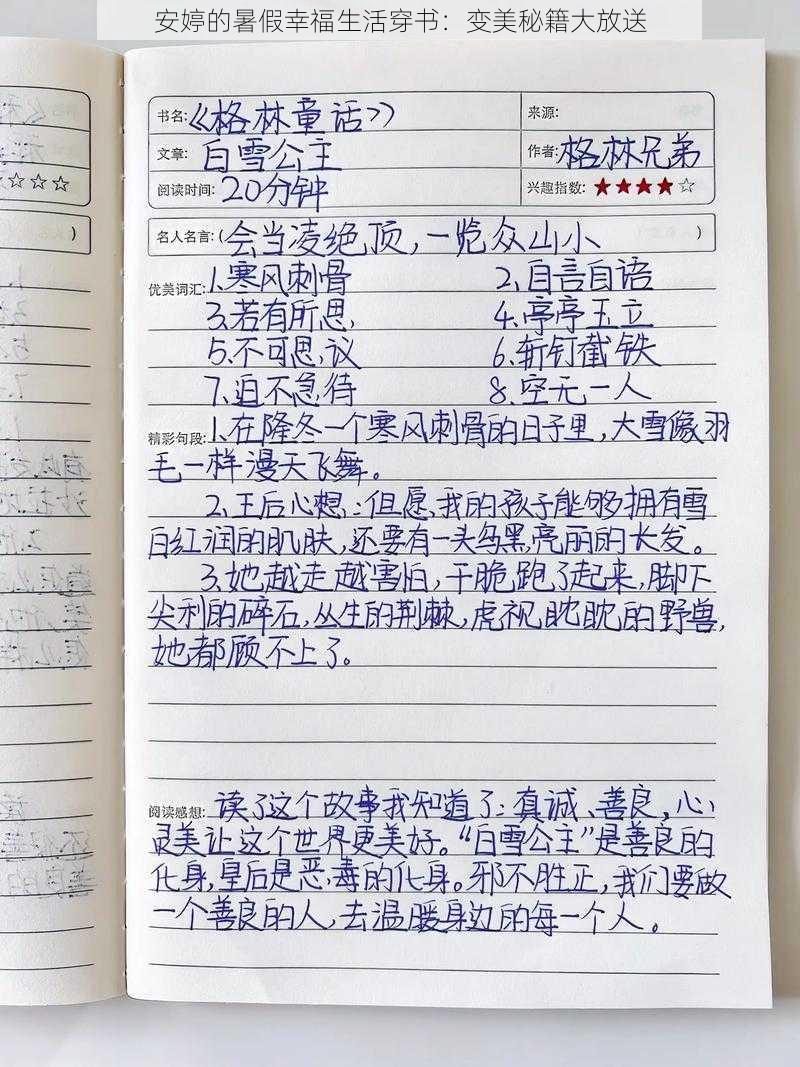 安婷的暑假幸福生活穿书：变美秘籍大放送
书名:《格林童话》 来源:
文章: 白雪公主 作者: 格林兄弟
阅读时间: 20分钟 兴趣指数: ★★★★☆
名人名言:( 会当凌绝顶,一览众山小 )
优美词汇: 1.寒风刺骨 2.自言自语
3.若有所思, 4.亭亭玉立
5.不可思议 6.斩钉截铁
7.迫不急待 8.空无一人
精彩句段: 1.在隆冬一个寒风刺骨的日子里,大雪像羽
毛一样漫天飞舞。
2.王后心想:但愿我的孩子能够拥有雪
白红润的肌肤,还要有一头乌黑亮丽的长发。
3.她越走越害怕,干脆跑了起来,脚下
尖利的碎石,丛生的荆棘,虎视眈眈的野兽,
她都顾不上了。
阅读感想: 读了这个故事我知道了:真诚、善良,心
灵美让这个世界更美好。“白雪公主”是善良的
化身,皇后是恶毒的化身。邪不胜正,我们要做
一个善良的人,去温暖身边的每一个人。